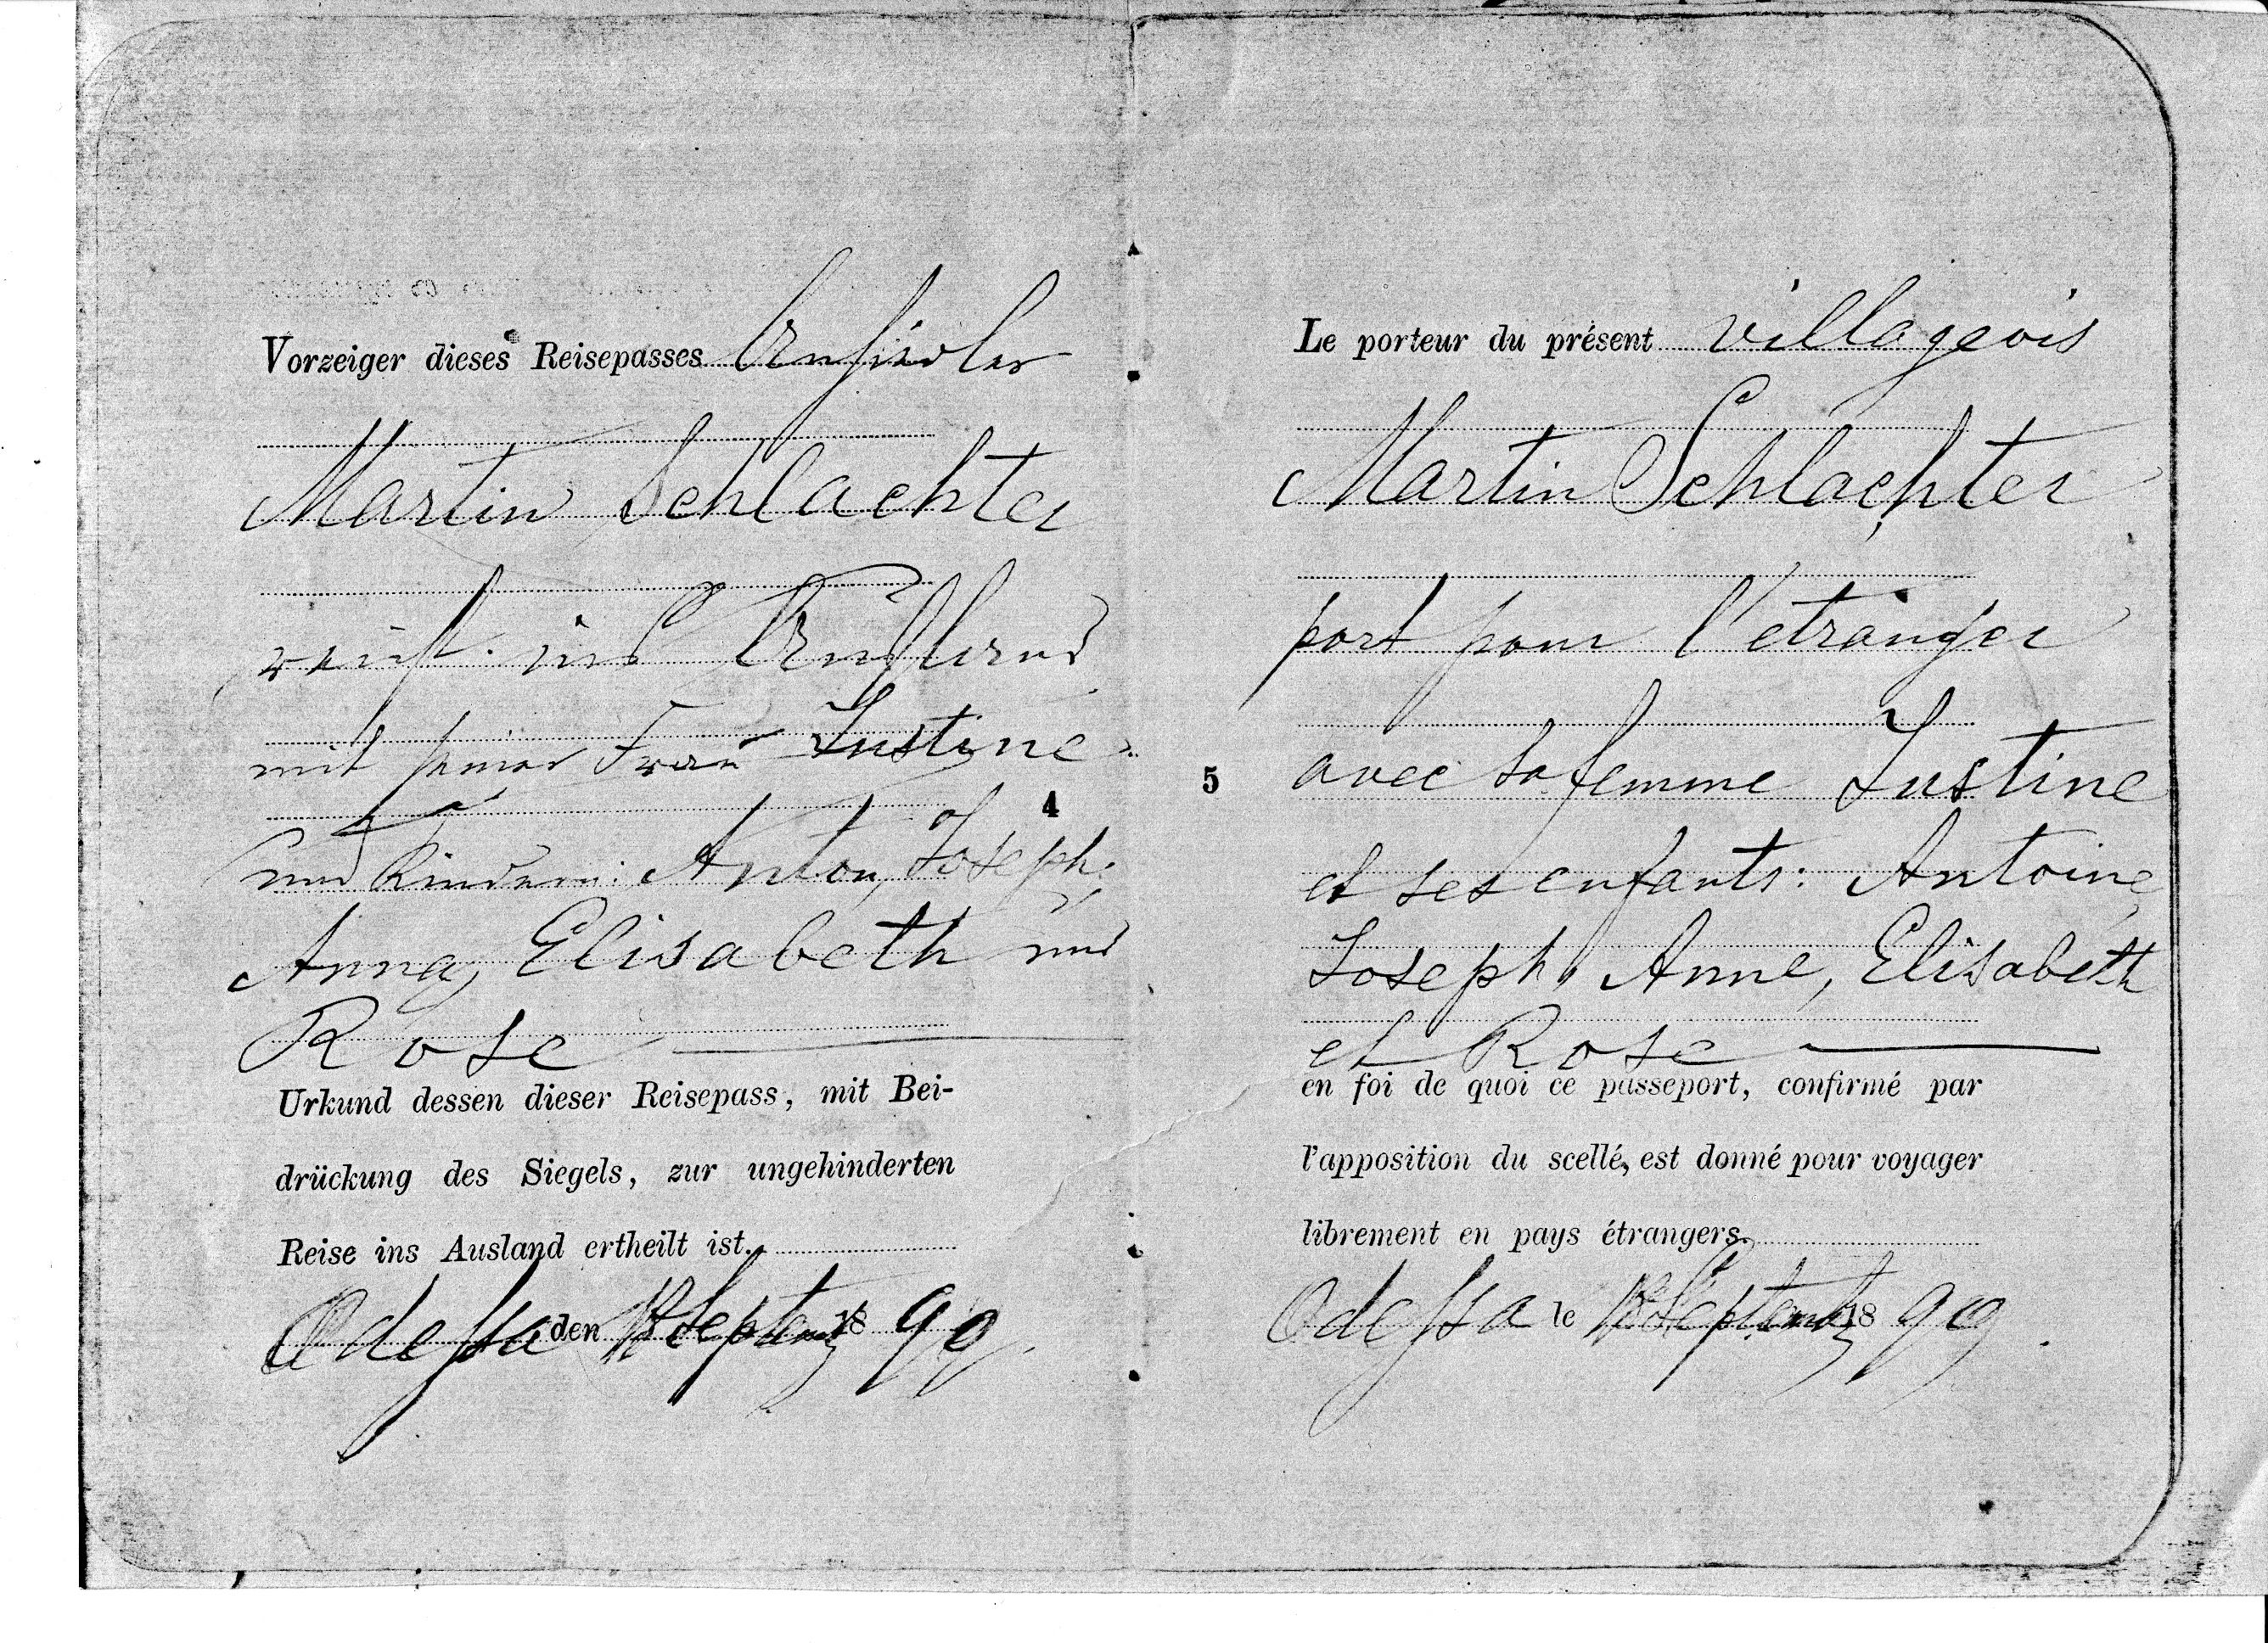 Vorzeiger dieses Reisepasses Ansiedler
Martin Schlachter
reist ins Ausland
mit seiner Frau Iustine
4
und Kindern: Anton, Joseph,
Anna, Elisabeth und
Rose
Urkund dessen dieser Reisepass, mit Bei-
drückung des Siegels, zur ungehinderten
Reise ins Ausland ertheilt ist.
Odessa den Septemb 18 90
Le porteur du présent villageois
Martin Schlachter
part pour l'étranger
5
avec sa femme Iustine
et ses enfants: Antoine,
Joseph, Anne, Elisabeth
et Rose
en foi de quoi ce passeport, confirmé par
l'apposition du scellé, est donné pour voyager
librement en pays étrangers.
Odessa le Septemb 18 90.